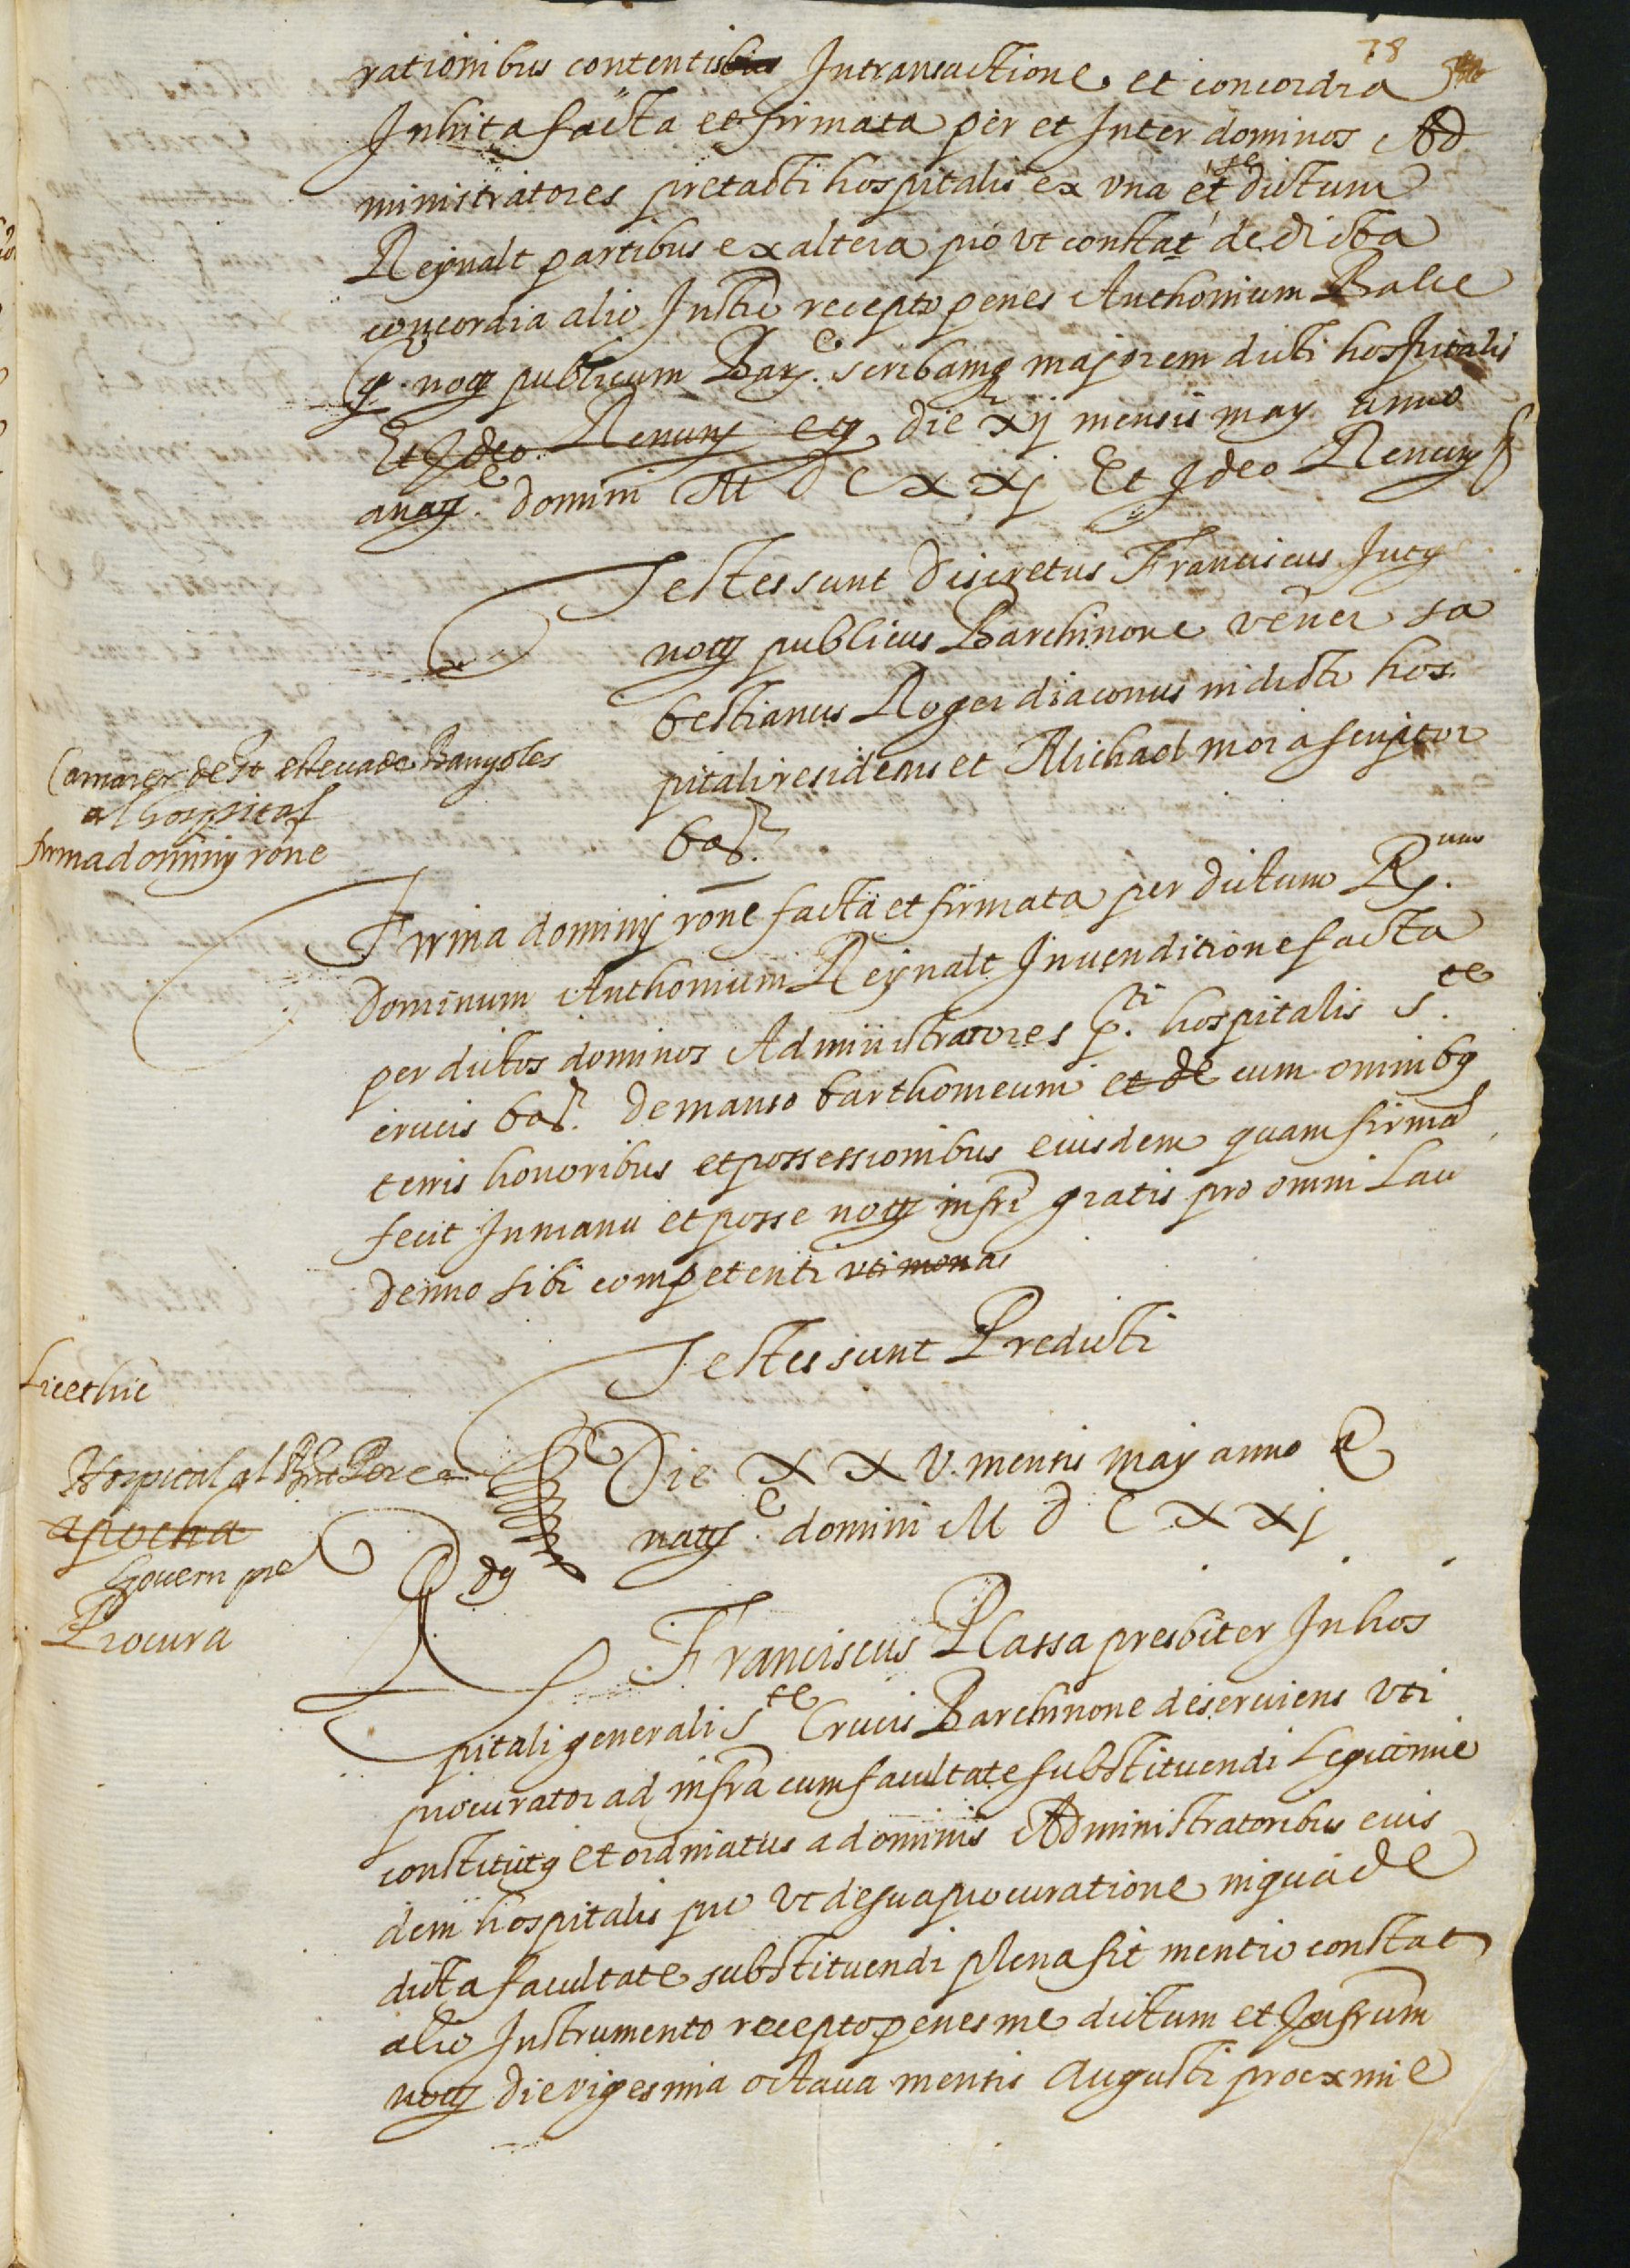 78
rationibus contentis Intransactione et concordia
Inhita facta et firmata per et Inter dominos Ad
ministratores pretacti hospitalis ex vna et se dictum
Reynalt partibus ex altera pro vt constat de dicta
concordia alio Instro recepto penes Anthonium Balle
notm publicum Barne. scribamq majorem dicti hospitalis
Et Ideo Renuns die xij mensis may anno
a nate. domini M d C x xj Et Ideo Renuns
Testes sunt discretus Franciscus
notus publicus Barchinone vener sa
bestianus Roger diaconus in dicto hos.
pitali residens et Michael mora scriptor
bar.
Camarer de St esteua de Banyoles
al hospital
firma dominy rone
Firma dominij rone facta et firmata per dictum R.um
dominum Anthonium Reynalt In venditione facta
per dictos dominos Administratores p.ti hospitalis S.te
crucis bar. de manso barthomeum et de cum omnibq
terris honoribus et possessionibus eiusdem quam firma
fecit In manu et posse notij infri gratis pro omni Lau
demio sibi competenti vti monas
Testes sunt Predicti
Licet hic
Die X X V. mensis may anno a
nate. domini M d C x xj
Hospital al
apocha
Govern pre
Procura
Franciscus Plassa presbiter In hos
pitali generali S.te Crucis Barchinone deserviens vti
procurator ad infra cum facultate substituendi Legittimie
constitutq et ordinatus a dominis Administratoribus eius
dem hospitalis pro vt de sua procuratione in qua de
dicta facultate substituendi plena fit mentio constat
alio Instrumento recepto penes me dictum et Infrum
notm die vigesima octaua mensis Augusti proexmie